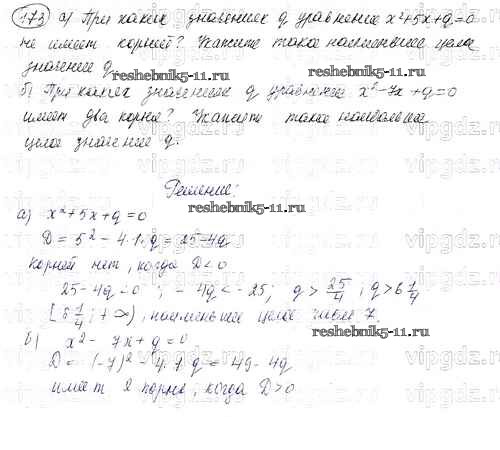 173 а) При каких значениях q уравнение x²+5x+q=0
не имеет корней? Укажите такое наименьшее целое
значение q.
reshebnik5-11.ru
б) При каких значениях q уравнение x²-7x+q=0
имеет два корня? Укажите такое наибольшее
целое значение q.
Решение:
reshebnik5-11.ru
а) x²+5x+q=0
D = 5² - 4·1·q = 25-4q
reshebnik5-11.ru
Корней нет, когда D<0
25-4q<0 ; -4q < -25; q > 25/4 ; q > 6 1/4
[6 1/4; +∞), наименьшее целое число 7.
reshebnik5-11.ru
б) x² - 7x + q = 0
D = (-7)² - 4·1·q = 49 - 4q
имеет 2 корня, когда D>0
vipgdz.ru